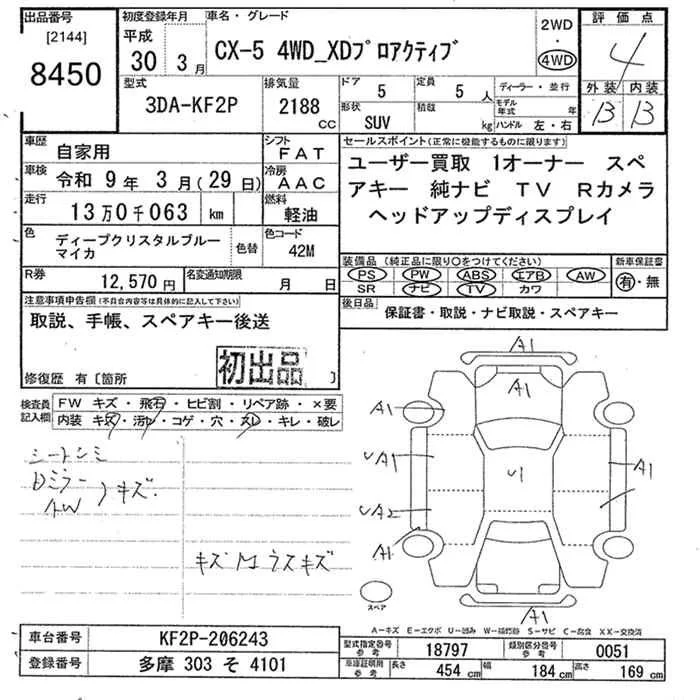 出品番号 初度登録年月 車名・グレード 2WD・4WD 評価点
[2144]
8450
平成 30年 3月
CX-5 4WD_XDプロアクティブ
4
型式 排気量 ドア 定員 ディーラー・並行 外装 内装
3DA-KF2P 2188 cc 5 5人 モデル年式 年 B B
形状 積載
SUV kg ハンドル 左・右
車歴 自家用 シフト FAT セールスポイント(正常に機能するものに限ります)
車検 令和 9年 3月(29日) 冷房 AAC
走行 13万0千063 km 燃料 軽油
ユーザー買取 1オーナー スペ
アキー 純ナビ TV Rカメラ
ヘッドアップディスプレイ
色 ディープクリスタルブルー
マイカ 色替 色コード 42M
装備品(純正品に限り○をつけてください) 新車保証書
PS PW ABS エアB AW 有・無
SR ナビ TV カワ
R券 12,570円 名変通知期限 月 日
後日品 保証書・取説・ナビ取説・スペアキー
注意事項申告欄(不具合内容等は具体的に記入して下さい)
取説、手帳、スペアキー後送
初出品
修復歴 有〔箇所 〕
検査員記入欄
FW キズ・飛石・ヒビ割・リペア跡・×要
内装 キズ・汚レ・コゲ・穴・スレ・キレ・破レ
シートシミ
Dミラー
AW
キズ.
キズ M ウスキズ
A1
A1
A1
UA1
U1
A1
UA2
A1
A1
スペア
A-キズ E-エクボ U-凹み W-補修跡 S-サビ C-腐食 XX-交換済
車台番号 KF2P-206243
登録番号 多摩 303 そ 4101
型式指定番号 参考 18797 類別区分番号 参考 0051
車庫証明用 参考 長さ 454 cm 幅 184 cm 高さ 169 cm